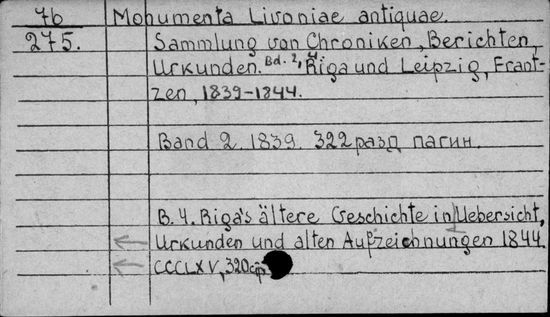 76 Monumenta Livoniae antiquae.
275. Sammlung von Chroniken, Berichten,
Urkunden. Bd. 2, 4 Riga und Leipzig, Frant-
zen, 1839-1844.
Band 2. 1839. 322 разд пагин.
B. 4. Riga's ältere Geschichte in Uebersicht,
Urkunden und alten Aufzeichnungen 1844.
CCCLXV, 320 стр